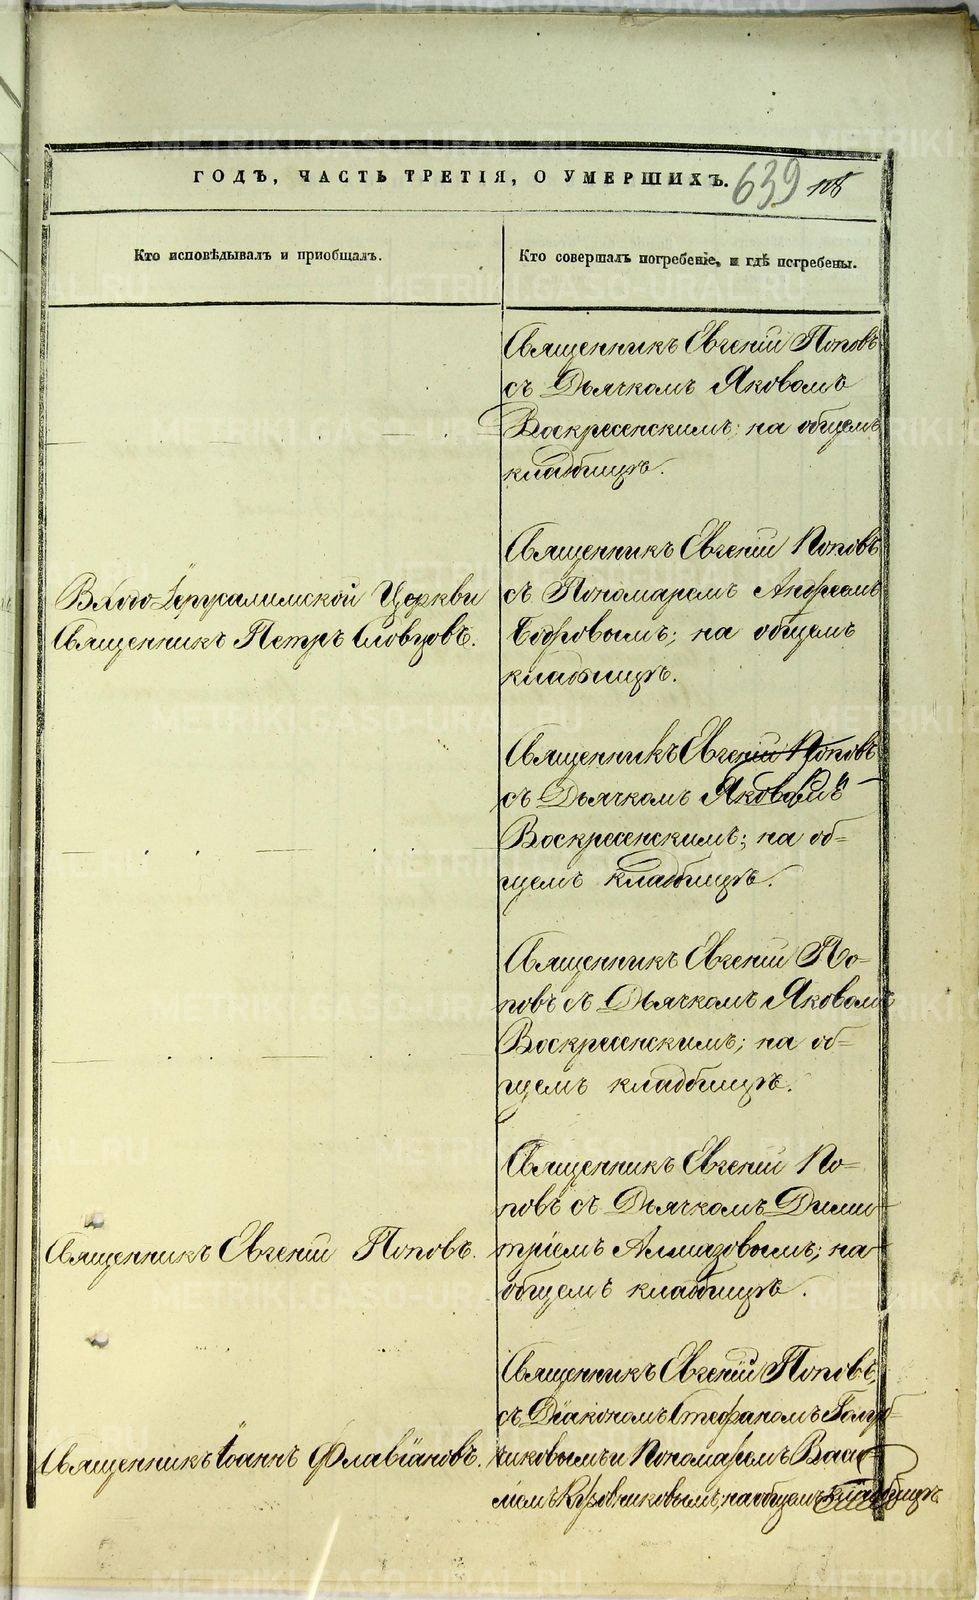 ГОДЪ, ЧАСТЬ ТРЕТІЯ, О УМЕРШИХЪ. 639 118
Кто исповѣдывалъ и приобщалъ.
Кто совершалъ погребеніе, и гдѣ погребены.
Священникъ Евгеній Поповъ
съ Дьячкомъ Яковомъ
Воскресенскимъ; на общемъ
кладбищѣ.
Входо-Іерусалимской Церкви
Священникъ Петръ Словцовъ.
Священникъ Евгеній Поповъ
съ Пономаремъ Андреемъ
Бобровымъ; на общемъ
кладбищѣ.
Священникъ Евгеній Поповъ
съ Дьячкомъ Яковомъ
Воскресенскимъ; на об-
щемъ кладбищѣ.
Священникъ Евгеній По-
повъ съ Дьячкомъ Яковомъ
Воскресенскимъ; на об-
щемъ кладбищѣ.
Священникъ Евгеній Поповъ.
Священникъ Евгеній По-
повъ съ Дьячкомъ Дими-
тріемъ Алмазовымъ; на
общемъ кладбищѣ.
Священникъ Іоаннъ Флавіановъ.
Священникъ Евгеній Поповъ,
съ Діакономъ Стефаномъ
и Пономаремъ
на общемъ кладбищѣ
METRIKI.GASO-URAL.RU